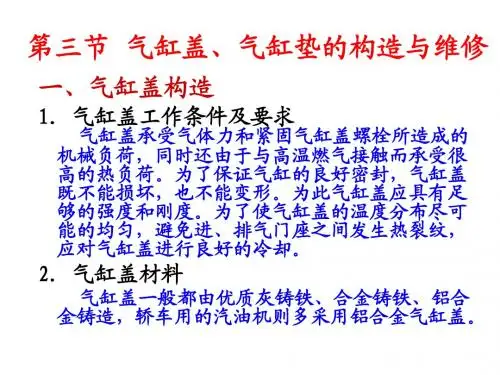 第三节 气缸盖、气缸垫的构造与维修
一、气缸盖构造
1. 气缸盖工作条件及要求
气缸盖承受气体力和紧固气缸盖螺栓所造成的
机械负荷,同时还由于与高温燃气接触而承受很
高的热负荷。为了保证气缸的良好密封,气缸盖
既不能损坏,也不能变形。为此气缸盖应具有足
够的强度和刚度。为了使气缸盖的温度分布尽可
能的均匀,避免进、排气门座之间发生热裂纹,
应对气缸盖进行良好的冷却。
2. 气缸盖材料
气缸盖一般都由优质灰铸铁、合金铸铁、铝合
金铸造,轿车用的汽油机则多采用铝合金气缸盖。